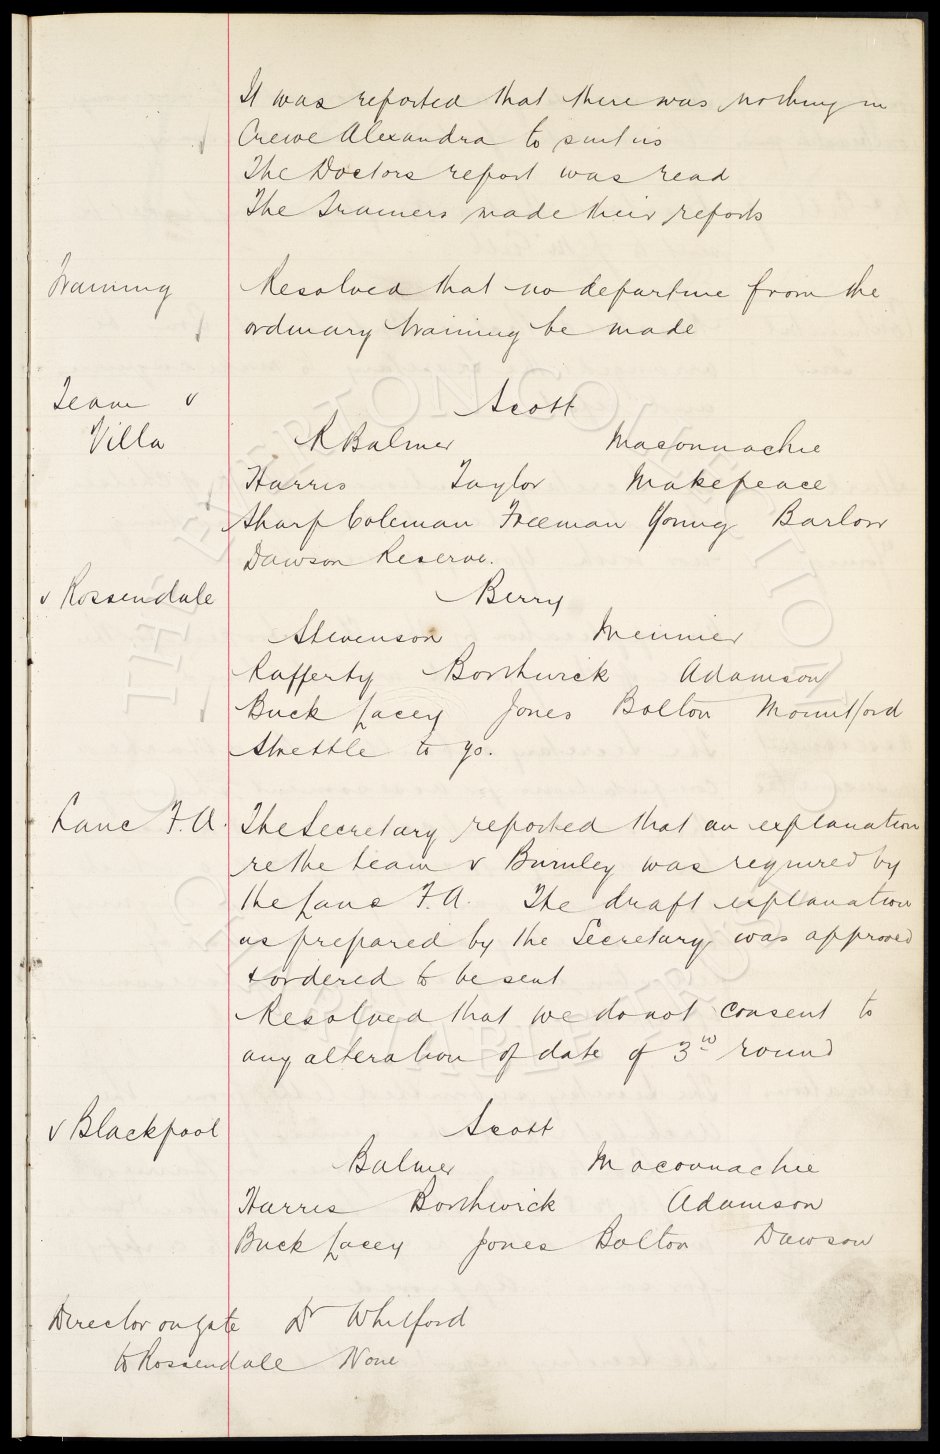 It was reported that there was nothing in
Crewe Alexandra to suit us
The Doctors report was read
The Trainers made their reports
Training Resolved that no departure from the
ordinary training be made
Team v Scott
Villa R Balmer Maconnachie
Harris Taylor Makepeace
Sharp Coleman Freeman Young Barlow
Dawson Reserve.
v Rossendale Berry
Stevenson Meunier
Rafferty Borthwick Adamson
Buck Lacey Jones Bolton Mountford
Strettle to go.
Lanc F.A. The Secretary reported that an explanation
re the team v Burnley was required by
the Lanc F.A. The draft explanation
as prepared by the Secretary was approved
& ordered to be sent
Resolved that we do not consent to
any alteration of date of 3rd round
v Blackpool Scott
Balmer Maconnachie
Harris Borthwick Adamson
Buck Lacey Jones Bolton Dawson
Director on gate Dr Whitford
to Rossendale None